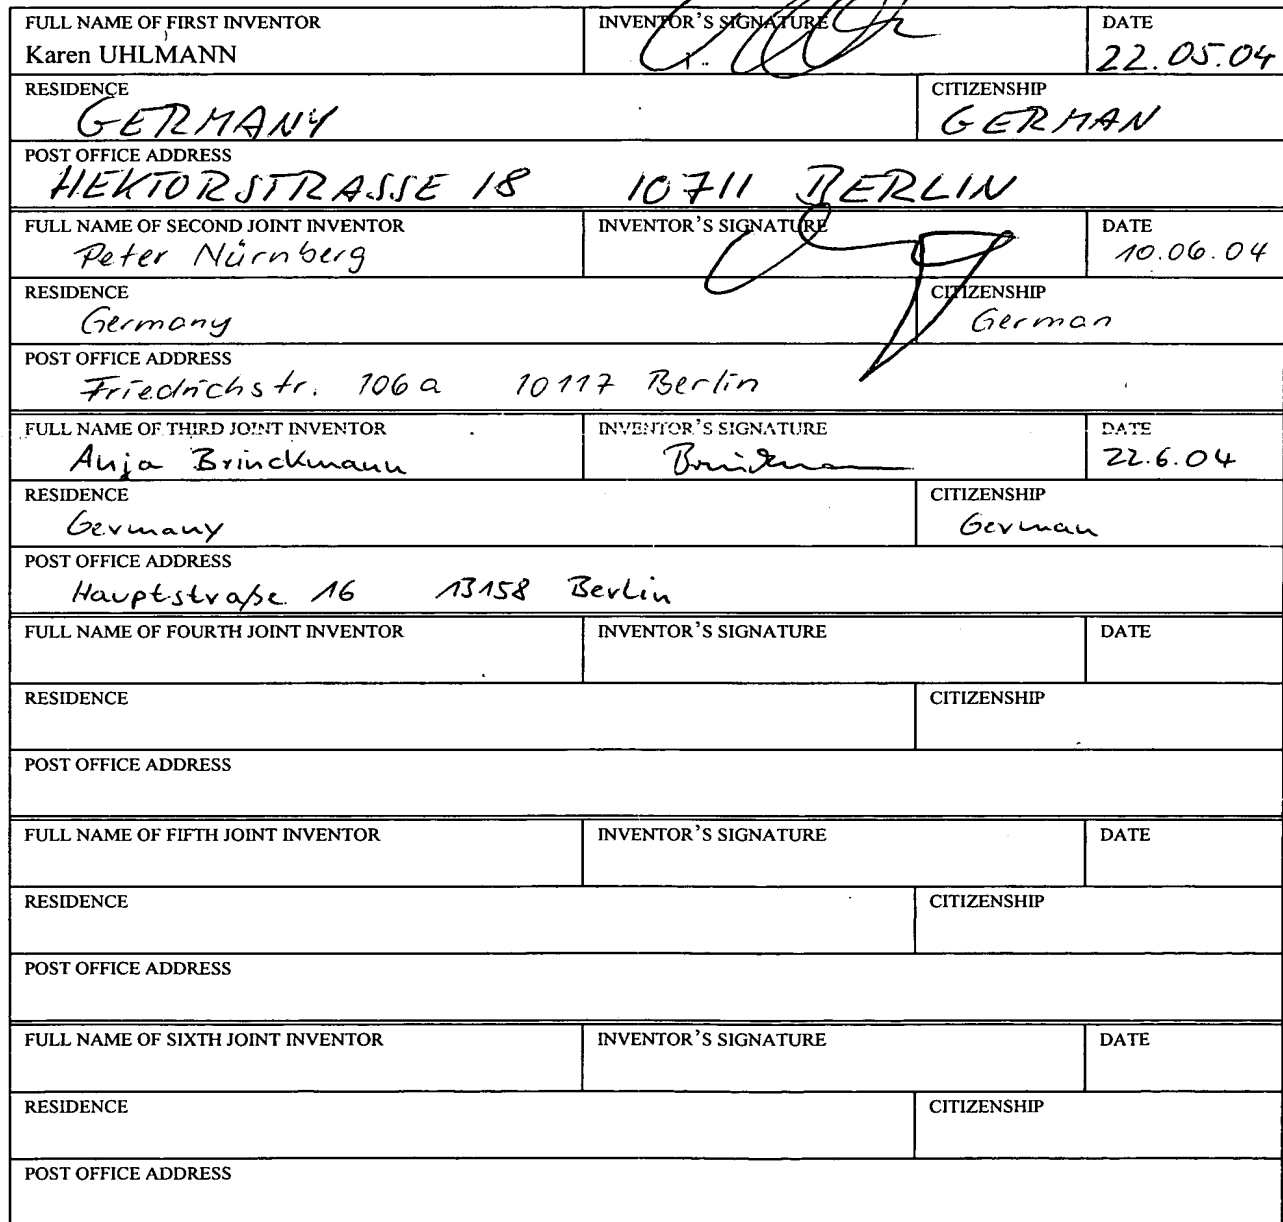 FULL NAME OF FIRST INVENTOR INVENTOR'S SIGNATURE DATE
Karen UHLMANN 22.05.04
RESIDENCE CITIZENSHIP
GERMANY GERMAN
POST OFFICE ADDRESS
HEKTORSTRASSE 18 10711 BERLIN
FULL NAME OF SECOND JOINT INVENTOR INVENTOR'S SIGNATURE DATE
Peter Nürnberg 10.06.04
RESIDENCE CITIZENSHIP
Germany German
POST OFFICE ADDRESS
Friedrichstr. 106a 10117 Berlin
FULL NAME OF THIRD JOINT INVENTOR INVENTOR'S SIGNATURE DATE
Anja Brinckmann Brinckmann 22.6.04
RESIDENCE CITIZENSHIP
Germany German
POST OFFICE ADDRESS
Hauptstraße 16 13158 Berlin
FULL NAME OF FOURTH JOINT INVENTOR INVENTOR'S SIGNATURE DATE
RESIDENCE CITIZENSHIP
POST OFFICE ADDRESS
FULL NAME OF FIFTH JOINT INVENTOR INVENTOR'S SIGNATURE DATE
RESIDENCE CITIZENSHIP
POST OFFICE ADDRESS
FULL NAME OF SIXTH JOINT INVENTOR INVENTOR'S SIGNATURE DATE
RESIDENCE CITIZENSHIP
POST OFFICE ADDRESS